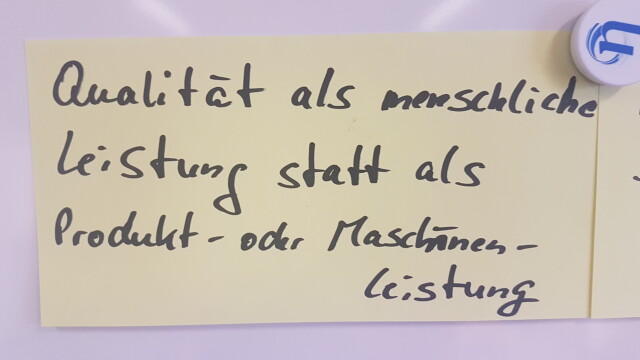 Qualität als menschliche
Leistung statt als
Produkt- oder Maschinen-
leistung